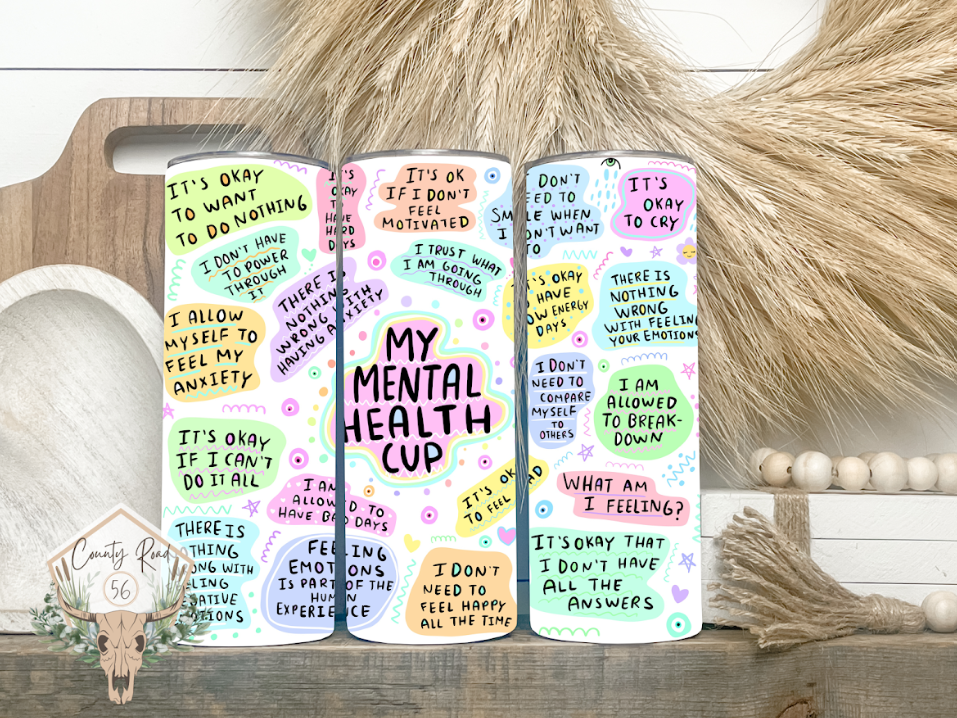 IT'S OKAY
TO WANT
TO DO NOTHING
IT'S
OKAY
TO
HAVE
HARD
DAYS
I DON'T HAVE
TO POWER
THROUGH
IT
THERE IS
NOTHING
WRONG WITH
HAVING ANXIETY
I ALLOW
MYSELF TO
FEEL MY
ANXIETY
IT'S OKAY
IF I CAN'T
DO IT ALL
I AM
ALLOWED TO
HAVE BAD DAYS
THERE IS
WITH
FEELING
EMOTIONS
IS PART OF THE
HUMAN
EXPERIENCE
IT'S OK
IF I DON'T
FEEL
MOTIVATED
I TRUST WHAT
I AM GOING
THROUGH
MY
MENTAL
HEALTH
CUP
IT'S OK
TO FEEL
I DON'T
NEED TO
FEEL HAPPY
ALL THE TIME
DON'T
TO
WHEN
I DON'T WANT
TO
IT'S
OKAY
TO CRY
IT'S OKAY
HAVE
LOW ENERGY
DAYS
THERE IS
NOTHING
WRONG
WITH FEELING
YOUR EMOTIONS
I DON'T
NEED TO
COMPARE
MYSELF
TO
OTHERS
I AM
ALLOWED
TO BREAK-
DOWN
WHAT AM
I FEELING?
IT'S OKAY THAT
I DON'T HAVE
ALL THE
ANSWERS
County Road
56